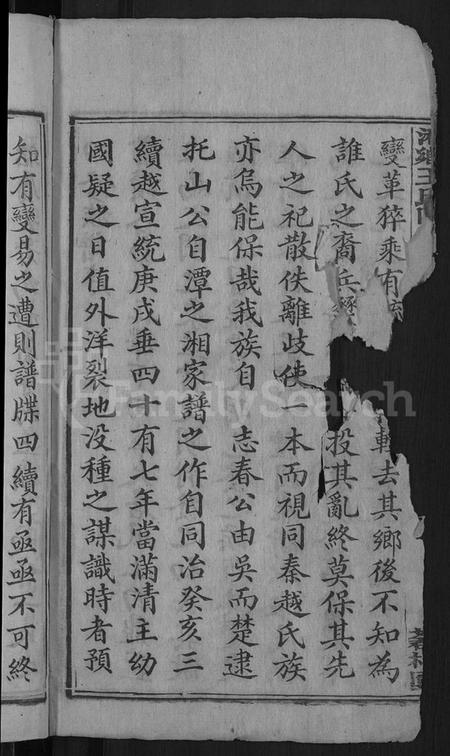 變革猝乘有
輒去其鄉後不知為
誰氏之裔兵
投其亂終莫保其先
人之祀散佚離歧使一本而視同秦越氏族
亦烏能保哉我族自 志春公由吳而楚逮
托山公自潭之湘家譜之作自同治癸亥三
續越宣統庚戌垂四十有七年當滿清主幼
國疑之日值外洋裂地没種之謀識時者預
知有變易之遭則譜牒四續有亟亟不可終
FamilySearch